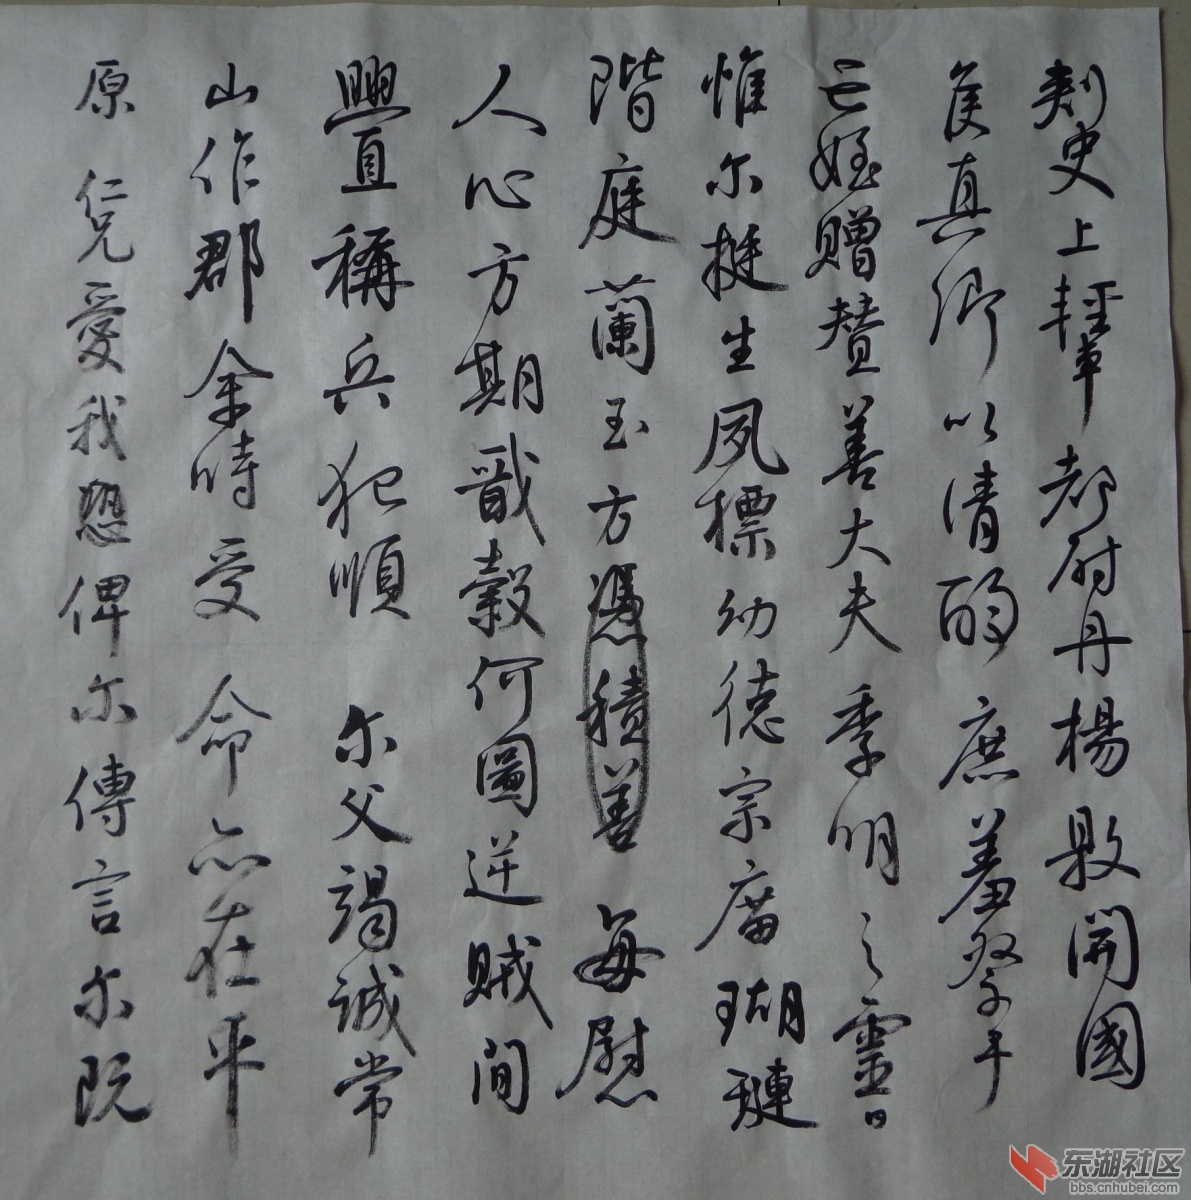 刺史上輕車都尉丹楊縣開國
侯真卿以清酌庶羞祭于
亡姪贈贊善大夫季明之靈曰
惟爾挺生夙標幼德宗廟瑚璉
階庭蘭玉方憑積善每慰
人心方期戩穀何圖逆賊間
釁直稱兵犯順爾父竭誠常
山作郡余時受命亦在平
原仁兄愛我恐俾爾傳言爾既
东湖社区
bbs.cnhubei.com